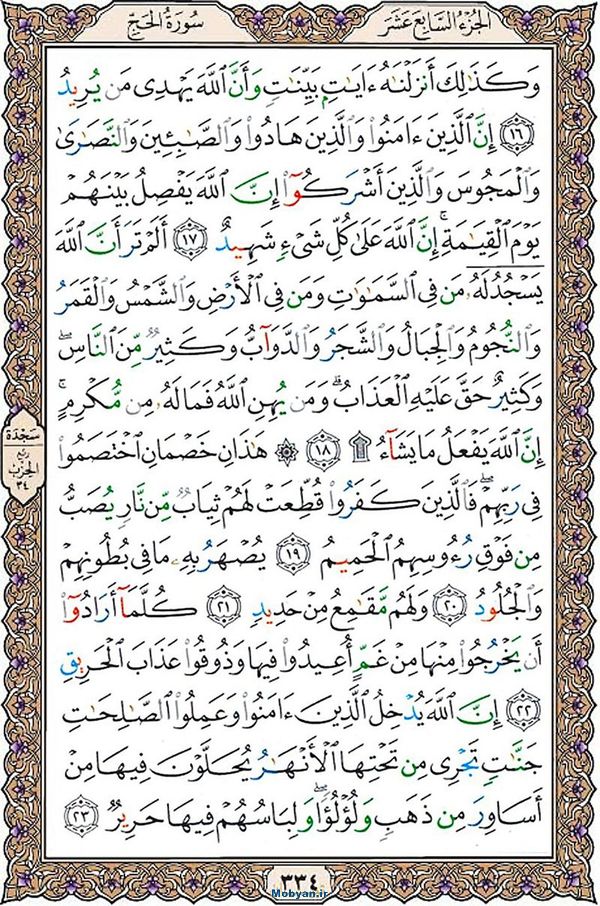 الجزء السابع عشر
سورة الحج
وَكَذَٰلِكَ أَنزَلْنَٰهُ ءَايَٰتٍۭ بَيِّنَٰتٍ وَأَنَّ ٱللَّهَ يَهْدِى مَن يُرِيدُ
١٦ إِنَّ ٱلَّذِينَ ءَامَنُوا۟ وَٱلَّذِينَ هَادُوا۟ وَٱلصَّٰبِـِٔينَ وَٱلنَّصَٰرَىٰ
وَٱلْمَجُوسَ وَٱلَّذِينَ أَشْرَكُوٓا۟ إِنَّ ٱللَّهَ يَفْصِلُ بَيْنَهُمْ
يَوْمَ ٱلْقِيَٰمَةِ ۚ إِنَّ ٱللَّهَ عَلَىٰ كُلِّ شَىْءٍ شَهِيدٌ ١٧ أَلَمْ تَرَ أَنَّ ٱللَّهَ
يَسْجُدُ لَهُۥ مَن فِى ٱلسَّمَٰوَٰتِ وَمَن فِى ٱلْأَرْضِ وَٱلشَّمْسُ وَٱلْقَمَرُ
وَٱلنُّجُومُ وَٱلْجِبَالُ وَٱلشَّجَرُ وَٱلدَّوَآبُّ وَكَثِيرٌ مِّنَ ٱلنَّاسِ ۖ
وَكَثِيرٌ حَقَّ عَلَيْهِ ٱلْعَذَابُ ۗ وَمَن يُهِنِ ٱللَّهُ فَمَا لَهُۥ مِن مُّكْرِمٍ ۚ
إِنَّ ٱللَّهَ يَفْعَلُ مَا يَشَآءُ ۩ ١٨ ۞ هَٰذَانِ خَصْمَانِ ٱخْتَصَمُوا۟
فِى رَبِّهِمْ ۖ فَٱلَّذِينَ كَفَرُوا۟ قُطِّعَتْ لَهُمْ ثِيَابٌ مِّن نَّارٍ يُصَبُّ
مِن فَوْقِ رُءُوسِهِمُ ٱلْحَمِيمُ ١٩ يُصْهَرُ بِهِۦ مَا فِى بُطُونِهِمْ
وَٱلْجُلُودُ ٢٠ وَلَهُم مَّقَٰمِعُ مِنْ حَدِيدٍ ٢١ كُلَّمَآ أَرَادُوٓا۟
أَن يَخْرُجُوا۟ مِنْهَا مِنْ غَمٍّ أُعِيدُوا۟ فِيهَا وَذُوقُوا۟ عَذَابَ ٱلْحَرِيقِ
٢٢ إِنَّ ٱللَّهَ يُدْخِلُ ٱلَّذِينَ ءَامَنُوا۟ وَعَمِلُوا۟ ٱلصَّٰلِحَٰتِ
جَنَّٰتٍ تَجْرِى مِن تَحْتِهَا ٱلْأَنْهَٰرُ يُحَلَّوْنَ فِيهَا مِنْ
أَسَاوِرَ مِن ذَهَبٍ وَلُؤْلُؤًا ۖ وَلِبَاسُهُمْ فِيهَا حَرِيرٌ ٢٣
سجدة
ربع
الحزب
٣٤
٣٣٤
Mobyan.ir